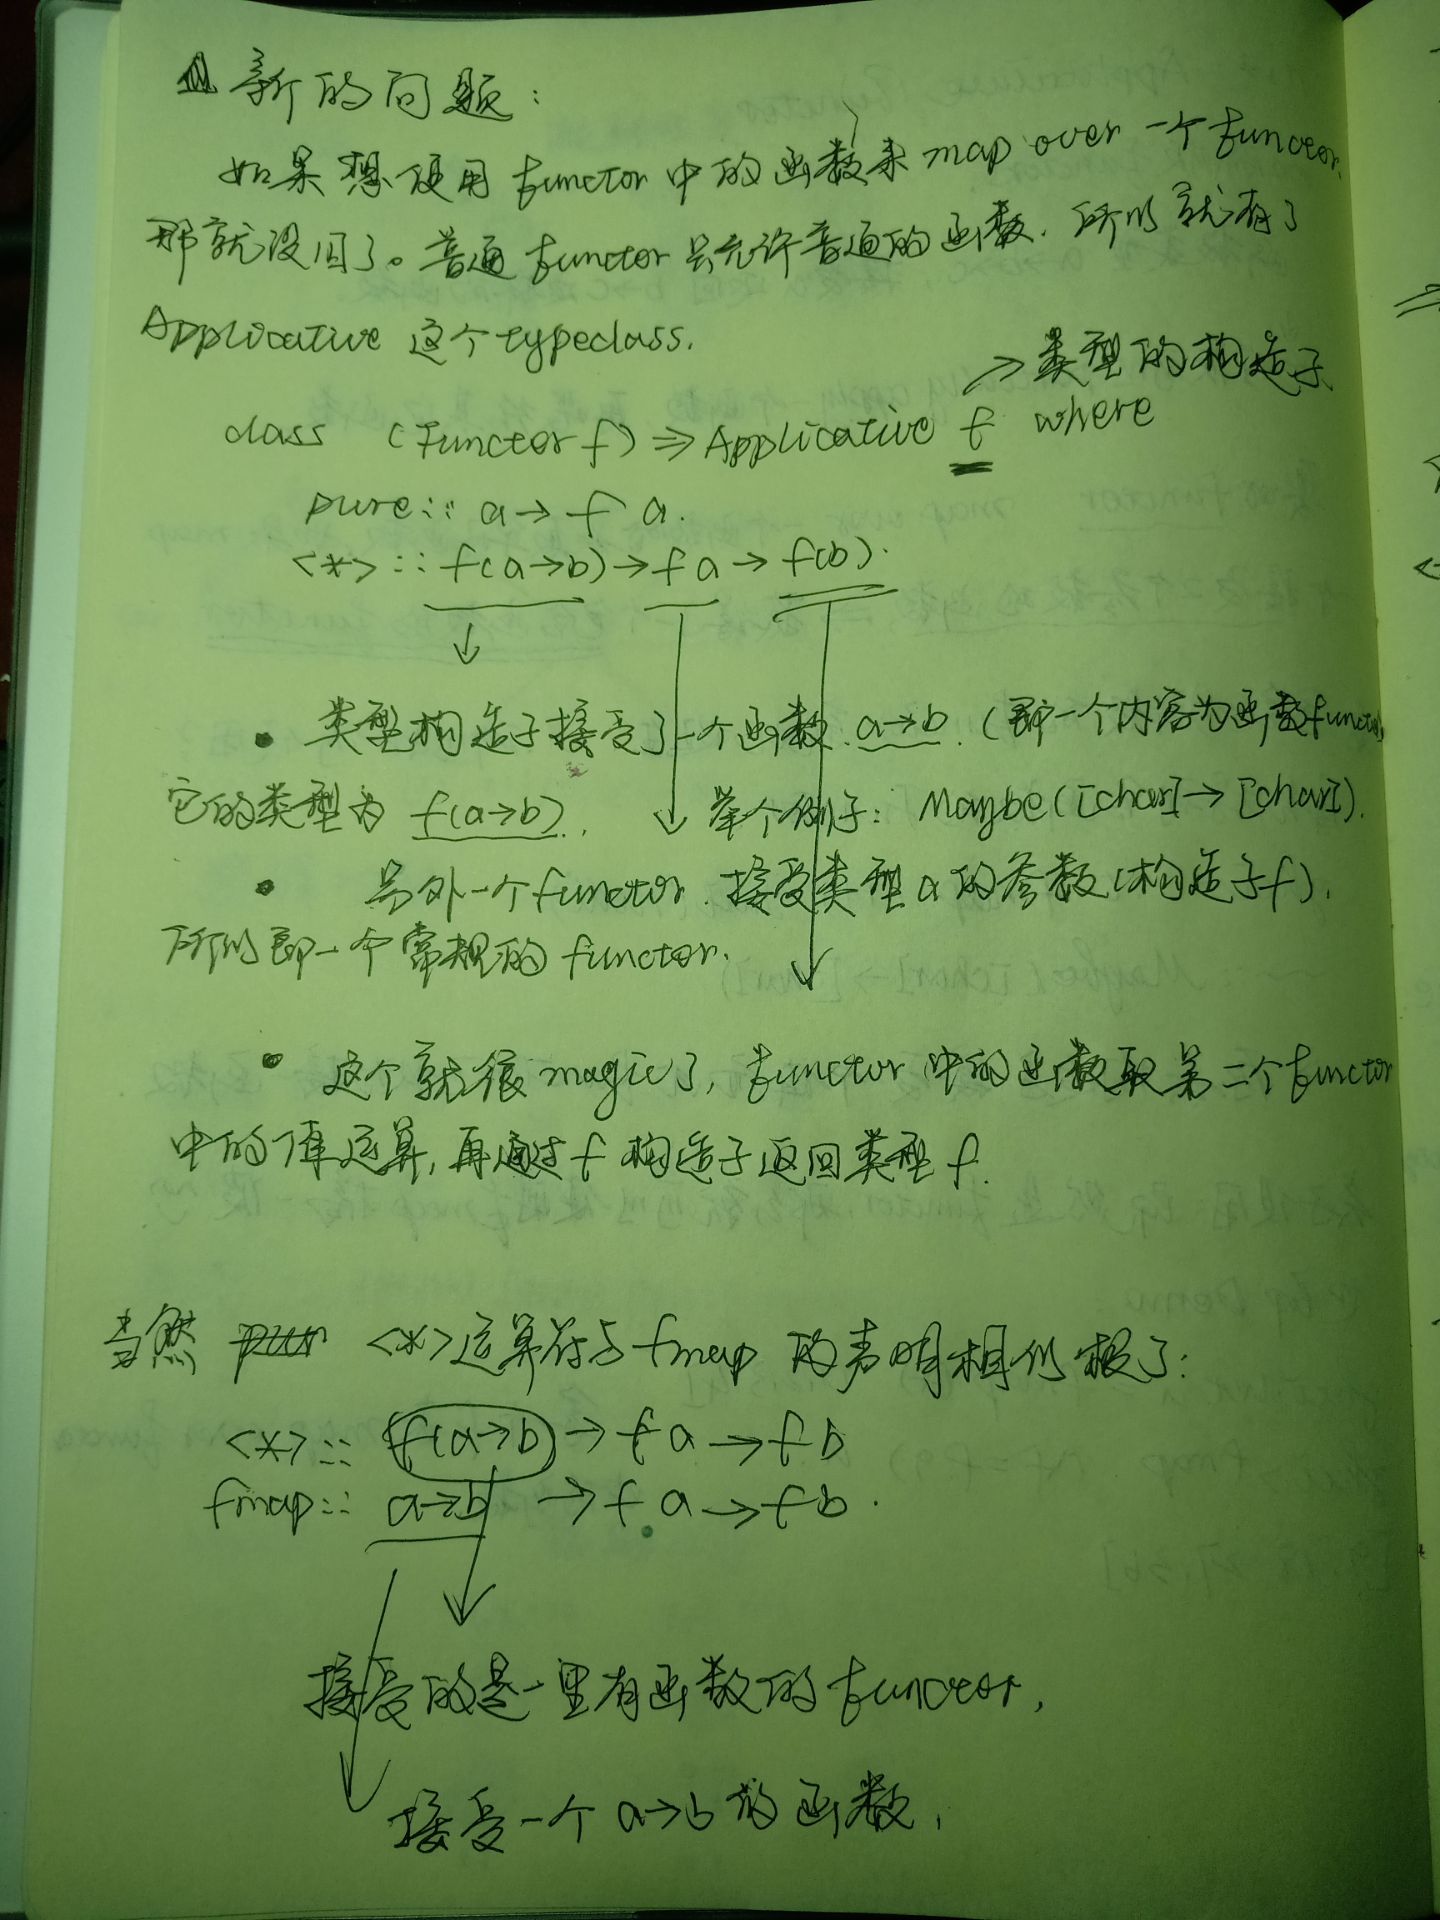 新的问题:
如果想使用 functor 中的函数来 map over 一个 functor,
那就没用了。普通 functor 只允许普通的函数. 所以就有了
Applicative 这个 typeclass.
→ 类型的构造子
class (Functor f) => Applicative f where
pure :: a → f a.
<*> :: f(a→b) → f a → f(b).
• 类型构造子接受了一个函数 a→b. (即一个内容为函数functor,
它的类型为 f(a→b). 举个例子: Maybe([char] → [char]).
• 另外一个 functor. 接受类型 a 的参数(构造子 f).
所以即一个常规的 functor.
• 这个就很 magic了, functor 中的函数取第二个 functor
中的值运算, 再通过 f 构造子返回类型 f.
当然 <*>运算符与 fmap 的声明相似极了:
<*> :: f(a→b) → f a → f b
fmap :: a→b → f a → f b.
接受的是一里有函数的 functor,
接受一个 a→b 的函数,